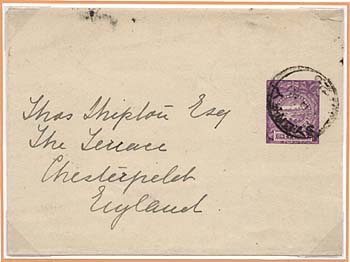 Thos Shipton Esq
The Terrace
Chesterfield
England.